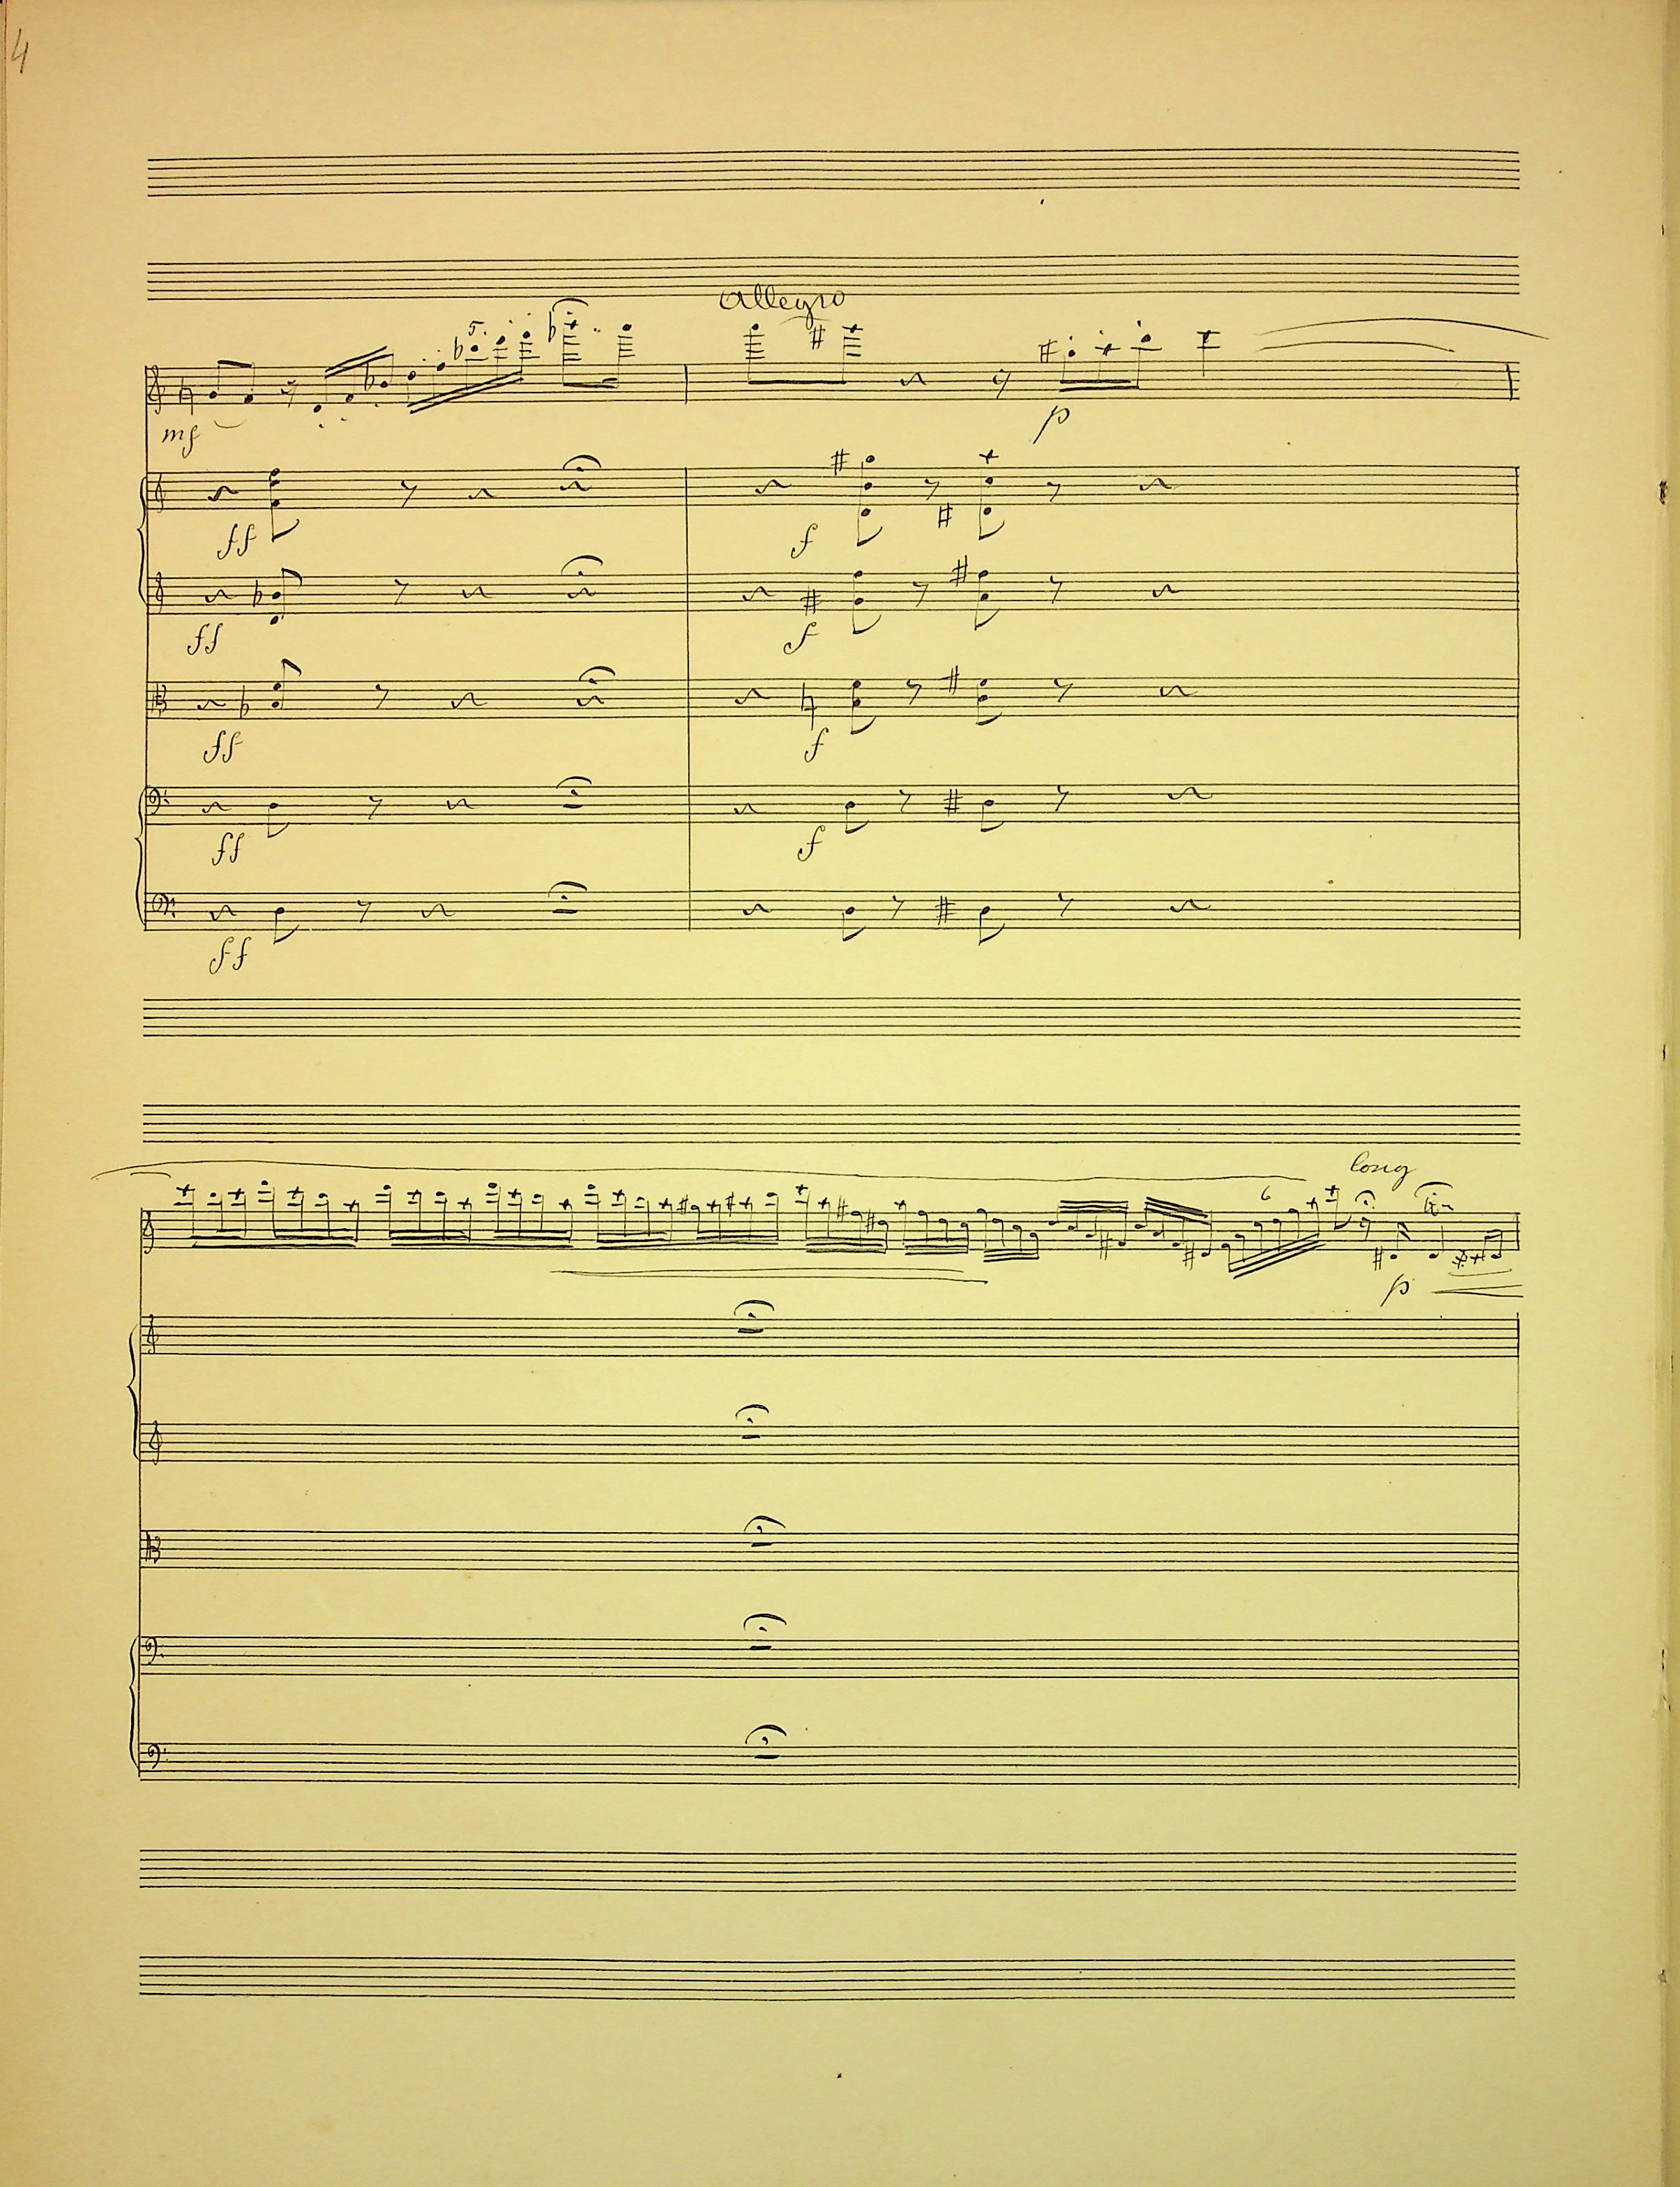 4
Allegro
5.
mf
p
ff
f
ff
f
ff
f
ff
f
ff
long
6
p